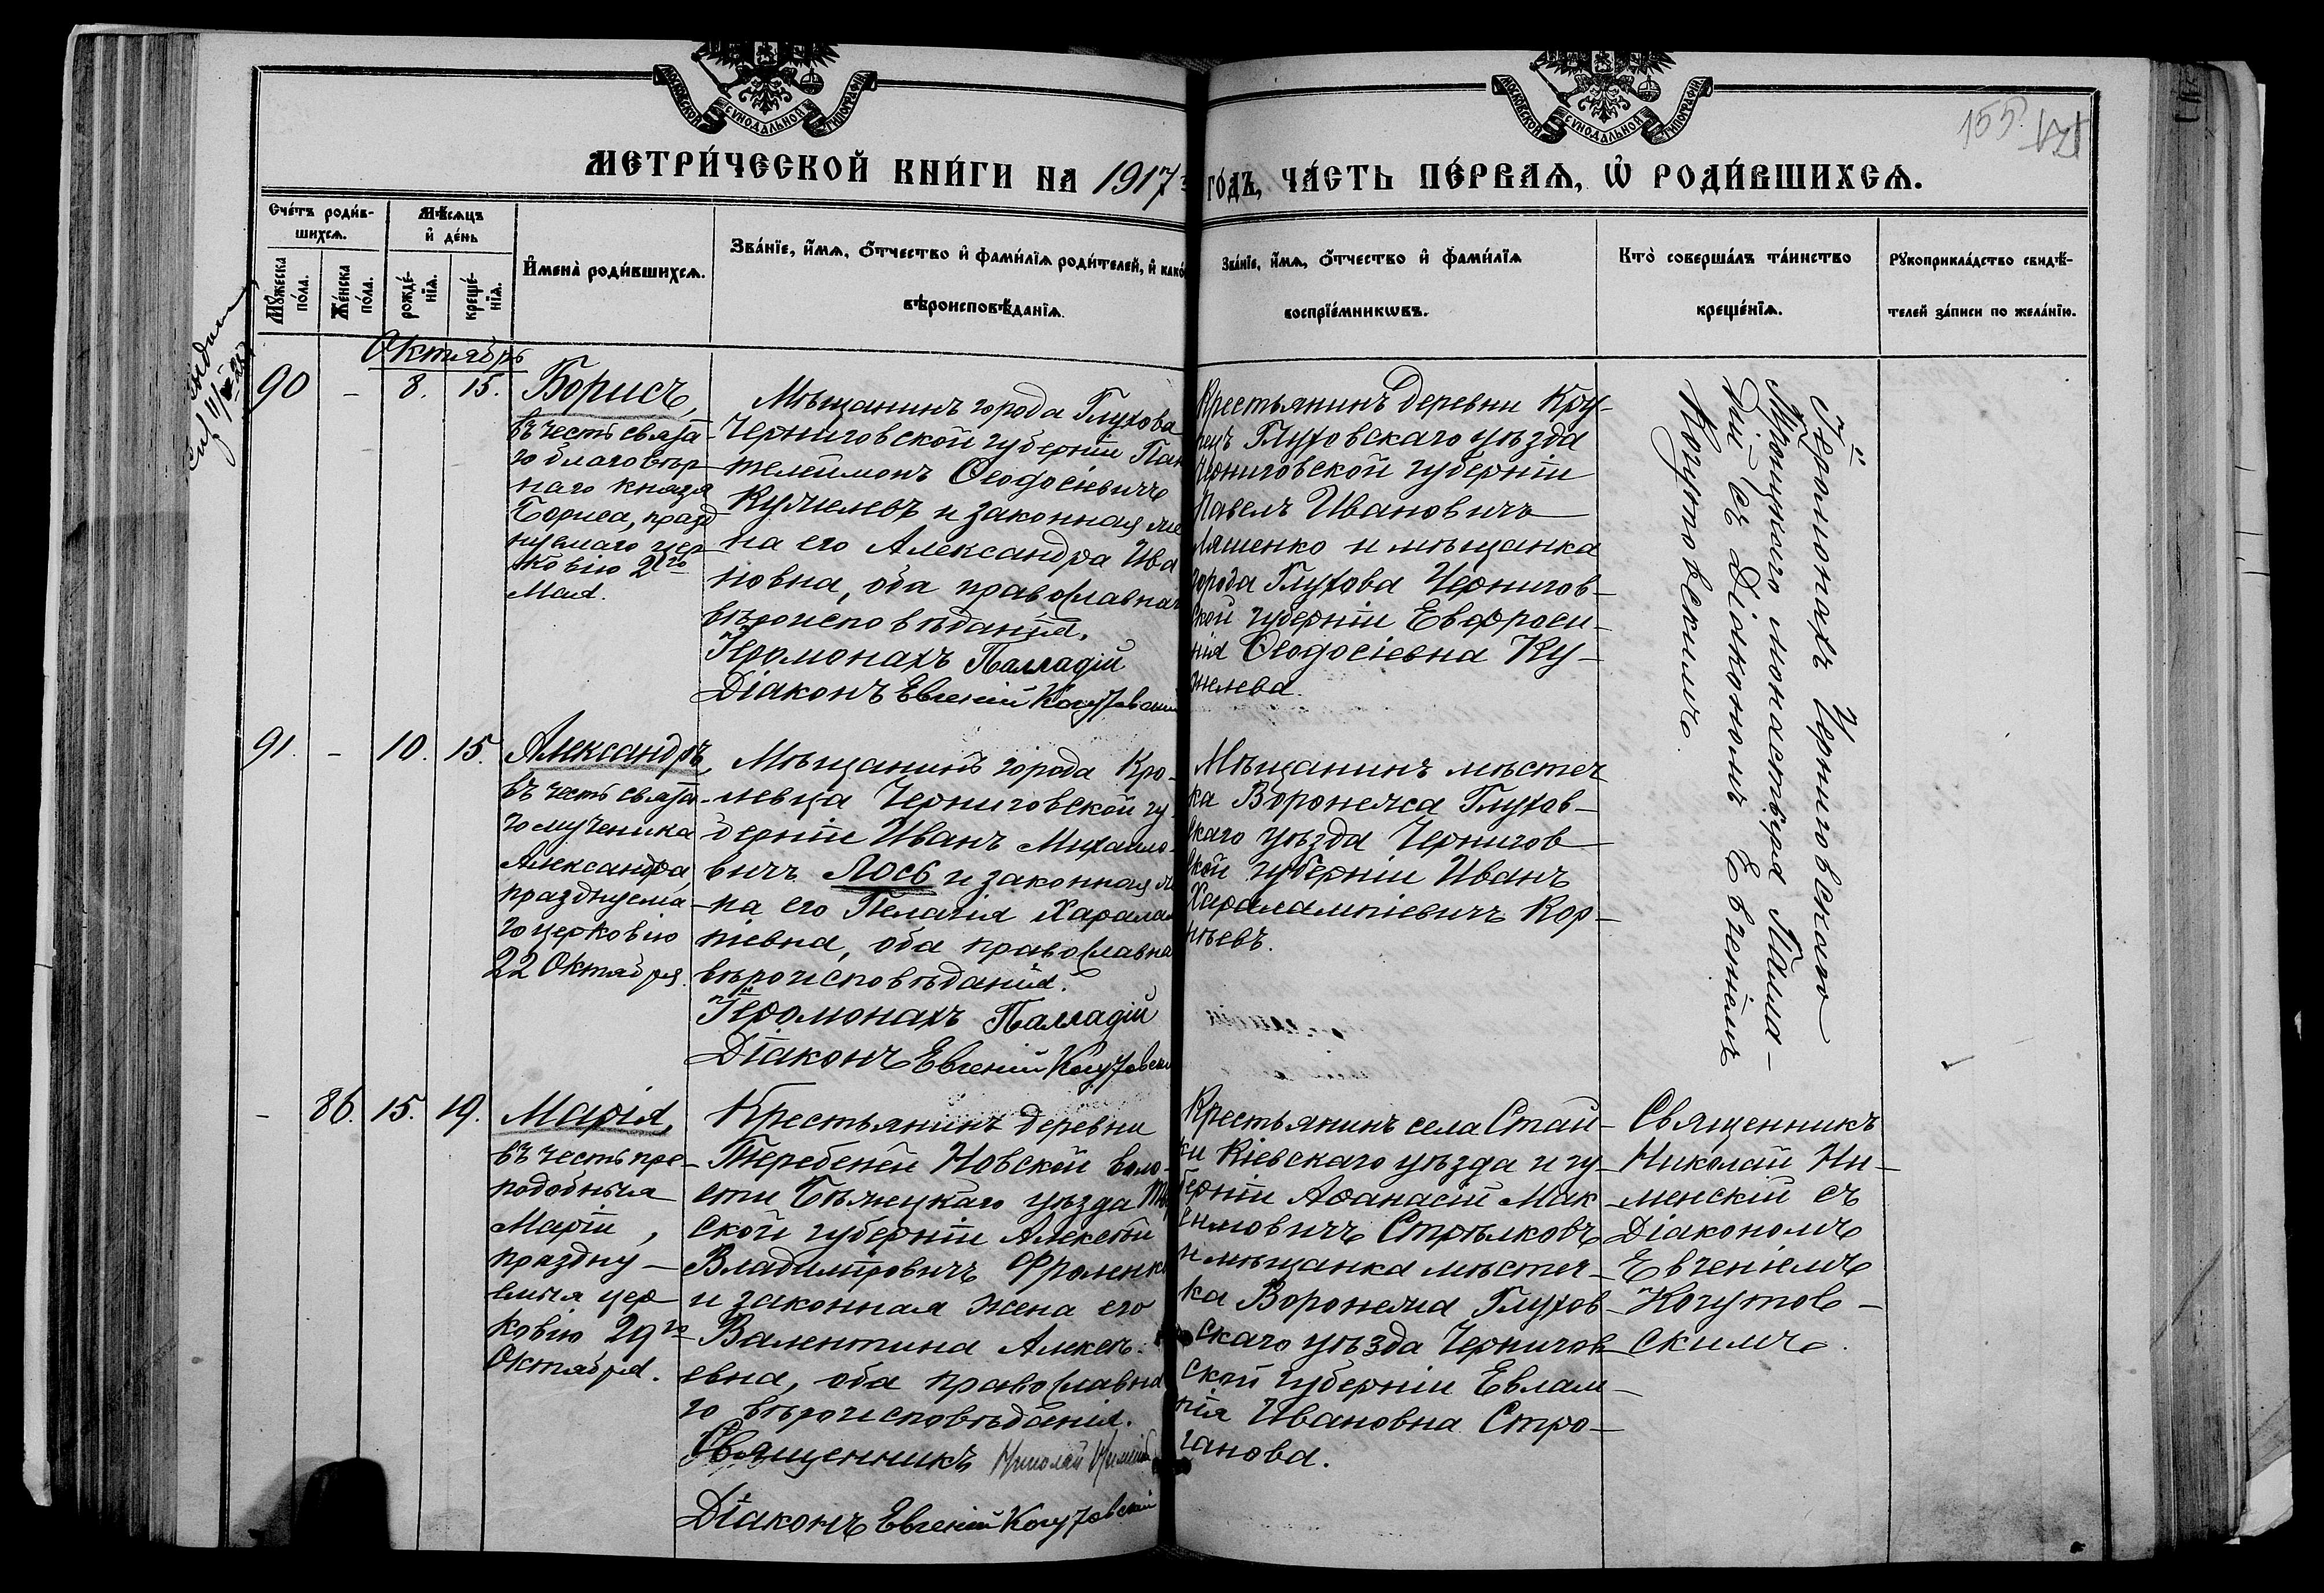 МОСКОВСКОЙ СѴНОДАЛЬНОЙ ТИПОГРАФІИ
МОСКОВСКОЙ СѴНОДАЛЬНОЙ ТИПОГРАФІИ
155
МЕТРИ́ЧЕСКОЙ КНИ́ГИ НА 1917
ГО́ДЪ, ЧА́СТЬ ПЕ́РВАѦ, Ѡ҆ РОДИ́ВШИХСѦ.
Сче́тъ роди́в-
шихсѧ.
Мѣ́сѧцъ
и҆ де́нь
Мꙋ́жеска
по́ла.
Же́нска
по́ла.
рожде́-
нїѧ.
креще́-
нїѧ.
И҆мена̀ роди́вшихсѧ.
Зва́нїе, и҆́мѧ, ѻ҆́тчество и҆ фами́лїѧ роди́телей, и҆ како́
вѣроисповѣ́данїѧ.
Зва́нїе, и҆́мѧ, ѻ҆́тчество и҆ фами́лїѧ
воспрїе́мникѡвъ.
Кто̀ соверша́лъ та́инство
креще́нїѧ.
Рꙋкоприкла́дство свидѣ́-
телей за́писи по жела́нїю.
Октябрь
90 – 8. 15.
Борисъ,
въ честь свята-
го благовѣр-
наго князя
Бориса, празд
нуемаго цер
ковію 2го
Мая.
Мѣщанинъ города Глухова
Черниговской губерніи Пан
телеимонъ Ѳеодосіевичъ
Кужелевъ и законная же
на его Александра Ива
новна, оба православнаг
вѣроисповѣданія.
Іеромонахъ Палладій
Діаконъ Евгеній Когутовскій
Крестьянинъ деревни Кру-
пецъ Глуховскаго уѣзда
Черниговской губерніи
Павелъ Ивановичъ
Ляшенко и мѣщанка
города Глухова Чернигов-
ской губерніи Евфроси-
нія Ѳеодосіевна Ку-
желева.
Іеромонахъ Черниговскаго
Троицкаго монастыря Палла-
дій съ Діакономъ Евгеніемъ
Когутовскимъ.
91. – 10. 15.
Александръ,
въ честь свята-
го мученика
Александра
празднуема-
го церковію
22 Октября.
Мѣщанинъ города Кро-
левца Черниговской гу-
берніи Иванъ Михайло-
вичъ Лось и законная ж
на его Пелагія Харалам
піевна, оба православна
вѣроисповѣданія.
Іеромонахъ Палладій
Діаконъ Евгеній Когутовскі
Мѣщанинъ мѣстеч
ка Воронежа Глухов-
скаго уѣзда Чернигов
ской губерніи Иванъ
Харалампіевичъ Кор-
нѣевъ.
– 86. 15. 19.
Марія,
въ честь пре-
подобныя
Маріи,
праздну-
емыя цер
ковію 29го
Октября.
Крестьянинъ деревни
Теребени Новской воло-
сти Бѣжецкаго уѣзда Тв
ской губерніи Алексѣй
Владиміровичъ Фроленко
и законная жена его
Валентина Алексѣ-
евна, оба православна
го вѣроисповѣданія.
Священникъ Николай
Діаконъ Евгеній Когутовскій
Крестьянинъ села Стай-
ки Кіевскаго уѣзда и гу-
берніи Аѳанасій Мак
симовичъ Стрѣлковъ
и мѣщанка мѣстеч-
ка Воронежа Глухов-
скаго уѣзда Чернигов
ской губерніи Евлам-
пія Ивановна Стро-
ганова.
Священникъ
Николай Ни-
менскій съ
Діакономъ
Евгеніемъ
Когутов-
скимъ.